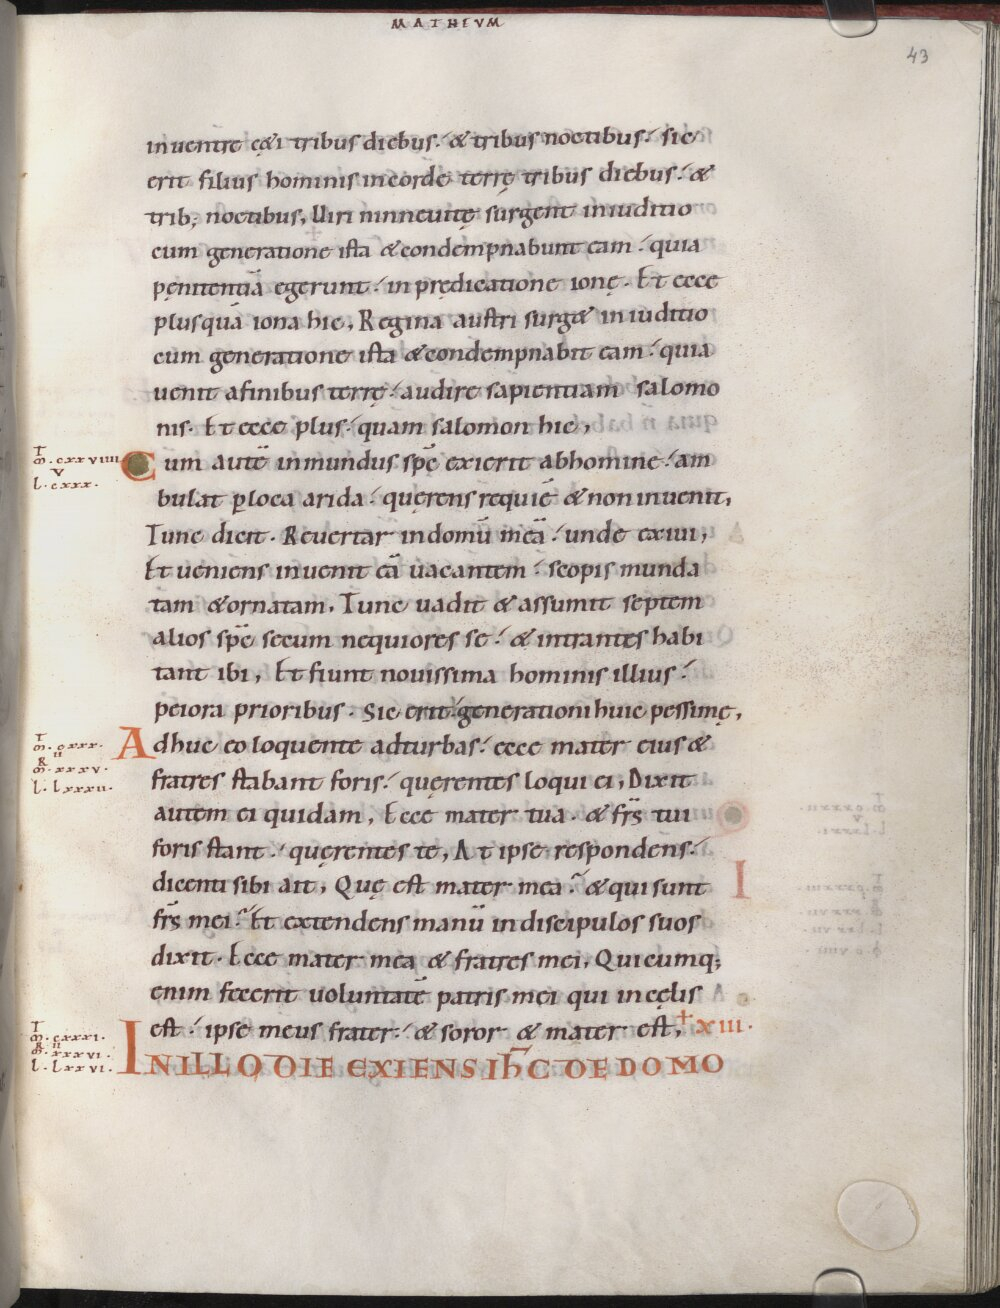 MATHEVM
43
inuentre cęti tribus diebus· & tribus noctibus· sic
erit filius hominis incorde terrę tribus diebus· &
trib; noctibus, Uiri ninneuitę surgent iniuditio
cum generatione ista &condempnabunt eam· quia
pęnitentiā egerunt· in prędicatione ionę· Et ecce
plusquā iona hic, Regina austri surg& iniuditio
cum generatione ista &condempnabit eam· quia
uenit afinibus terrę· audire sapientiam salomo
nis· Et ecce plus· quam salomon hic,
T
m̄·cxxviiii
v
l·cxxx·
Cum autē inmundus sp̄c exierit abhomine· am
bulat ꝑloca arida· quęrens requiē & non inuenit,
Tunc dicit· Reuertar indomū meā· unde exiui,
Et ueniens inuenit eā uacantem· scopis munda
tam &ornatam, Tunc uadit & assumit septem
alios sp̄c secum nequiores se· & intrantes habi
tant ibi, Et fiunt nouissima hominis illius·
peiora prioribus· Sic erit· generationi huic pessimę,
T
m̄·cxxx·
R ii
m̄·xxxv·
l·lxxxii·
Adhuc eo loquente adturbas· ecce mater eius &
fratres stabant foris· quęrentes loqui ei, Dixit
autem ei quidam, Ecce mater tua· & fr̄s tui
foris stant· quęrentes te, At ipse respondens·
dicenti sibi ait, Quę est mater mea· & qui sunt
fr̄s mei· Et extendens manū indiscipulos suos
dixit· Ecce mater mea & fratres mei, Quicumq;
enim fecerit uoluntatē patris mei qui incęlis
est· ipse meus frater· & soror & mater est, + xiii·
T
m̄·cxxxi·
R ii
m̄·xxxvi·
l·lxxvi·
INILLO DIE EXIENS IH̄C DE DOMO